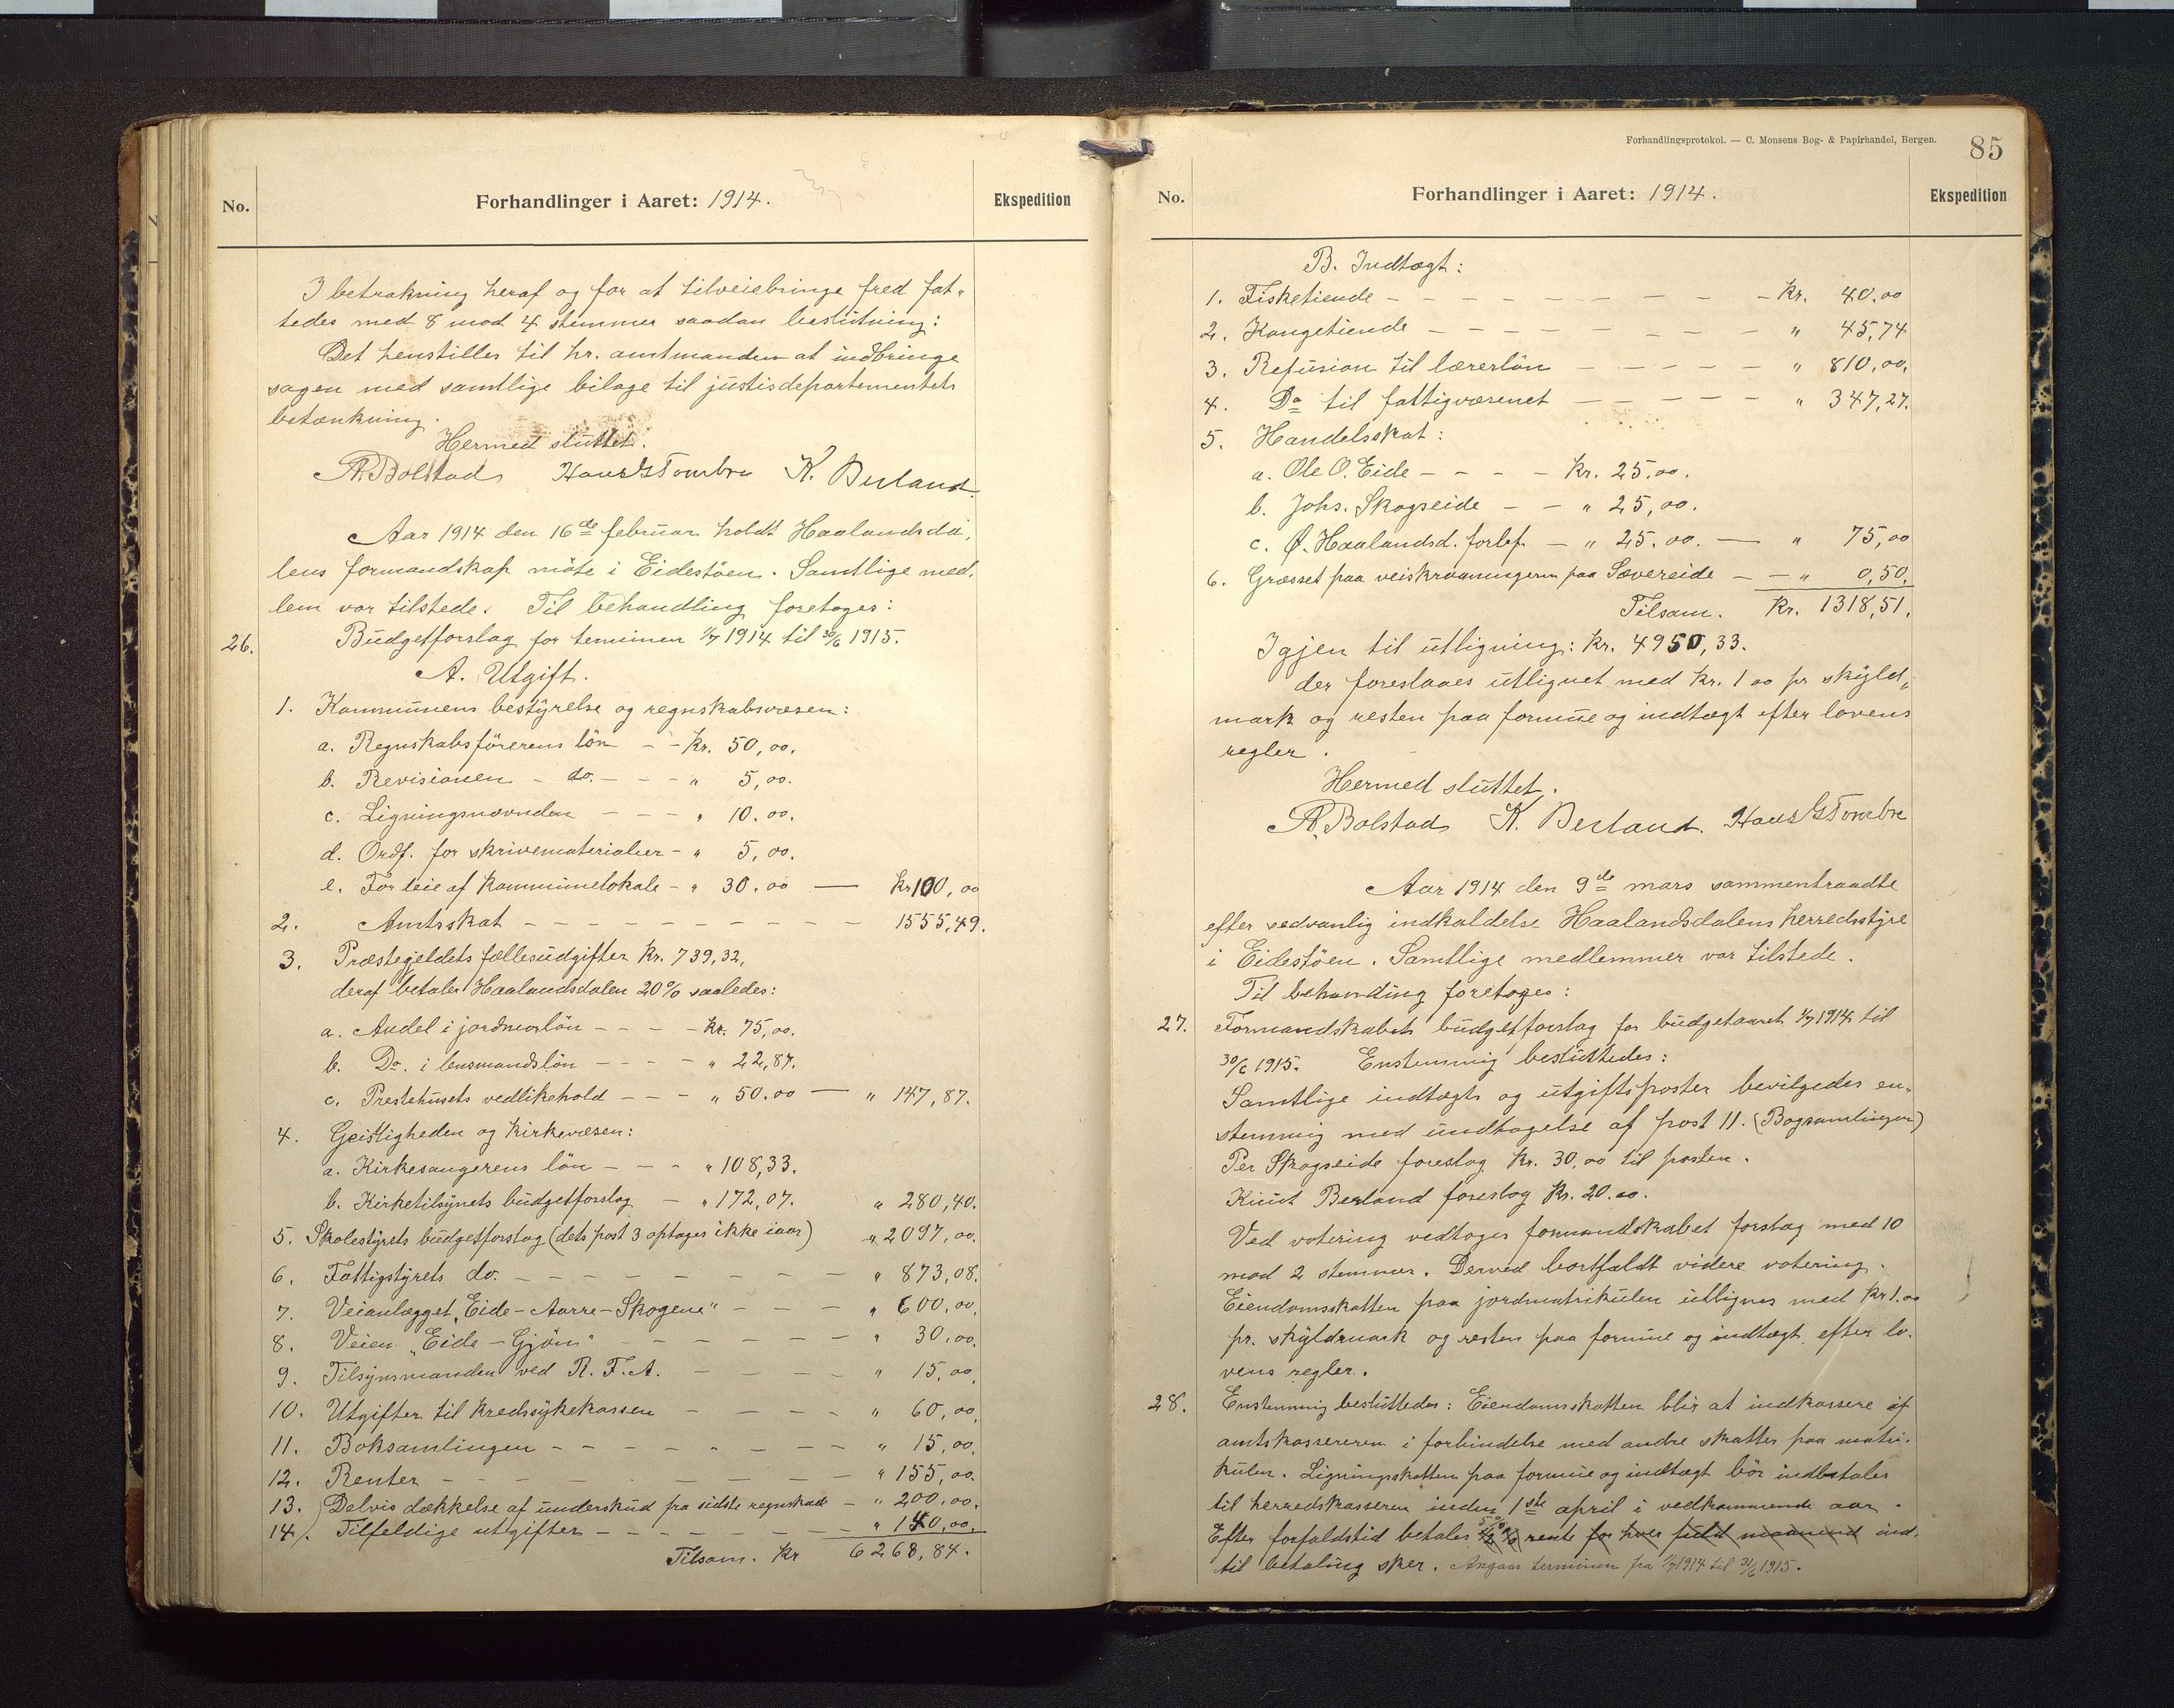 No.
Forhandlinger i Aaret: 1914.
Ekspedition
I betrakning heraf og for at tilveiebringe fred fat-
tedes med 8 mod 4 stemmer saadan beslutning:
Det henstilles til hr. amtmanden at indbringe
sagen med samtlige bilage til justisdepartementets
betænkning.
Hermed sluttet.
A. Bolstad Hans G Tombre K. Berland
Aar 1914 den 16de februar holdt Haalandsda-
lens formandskap möte i Eidestöen. Samtlige med-
lem var tilstede. Til behandling foretoges:
26. Budgetforslag for terminen 1/7 1914 til 30/6 1915.
A. Utgift.
1. Kommunens bestyrelse og regnskabsvæsen:
a. Regnskabsförerens lön - - Kr. 50,00.
b. Revisionen - do. - - - " 5,00.
c. Ligningsnævnden - - - " 10.00.
d. Ordf. for skrivematerialier - " 5,00.
e. For leie af kommunelokale - " 30.00 — Kr 100,00
2. Amtsskat - - - - - - - - - - 1555,49.
3. Præstegjeldets fællesudgifter Kr. 739,32,
deraf betaler Haalandsdalen 20% saaledes:
a. Andel i jordmorlön - - - - Kr. 75,00.
b. Do. i lensmandslön - - - - " 22,87.
c. Prestehusets vedlikehold - - - " 50.00 — " 147,87.
4. Geistligheden og kirkevæsen:
a. Kirkesangerens lön - - - " 108,33.
b. Kirketilsynets budgetforslag - " 172,07. " 280,40.
5. Skolestyrets budgetforslag (dets post 3 optages ikke iaar) " 2097,00.
6. Fattigstyrets do. - - - - - - - - " 873,08.
7. Veianlægget "Eide-Aarre-Skogene" - - - " 600,00.
8. Veien "Eide-Gjön" - - - - - - " 30,00.
9. Tilsynsmanden ved R. F. A. - - - - " 15,00.
10. Utgifter til kredssykekassen - - - - " 60,00.
11. Boksamlingen - - - - - - - - " 15,00.
12. Renter - - - - - - - - - " 155,00.
13. Delvis dækkelse af underskud fra sidste regnskab - " 200,00.
14. Tilfeldige utgifter - - - - - - - " 140,00.
Tilsam. Kr 6268,84.
Forhandlingsprotokol. — C. Monsens Bog- & Papirhandel, Bergen.
85
No.
Forhandlinger i Aaret: 1914.
Ekspedition
B. Indtægt:
1. Fisketiende - - - - - - - - - Kr. 40.00
2. Kongetiende - - - - - - - - " 45,74
3. Refusion til lærerlön - - - - - " 810,00.
4. Do til fattigvæsenet - - - - - " 347,27.
5. Handelsskat:
a. Ole O. Eide - - - - Kr. 25.00.
b. Johs. Skogseide - - " 25,00.
c. Ø. Haalandsd. forbf. - " 25.00. — " 75,00
6. Græsset paa veiskraaningen paa Sævereide - - " 0,50.
Tilsam. Kr. 1318,51.
Igjen til utligning: Kr. 4950,33.
der foreslaaes utlignet med Kr. 1 00 pr skyld-
mark og resten paa formue og indtægt efter lovens
regler.
Hermed sluttet.
A. Bolstad K. Berland. Hans G Tombre
Aar 1914 den 9de mars sammentraadte
efter sedvanlig indkaldelse Haalandsdalens herredsstyre
i Eidestöen. Samtlige medlemmer var tilstede.
Til behandling foretoges:
27. Formandskabets budgetforslag for budgetaaret 1/7 1914 til
30/6 1915. Enstemmig besluttedes:
Samtlige indtægts og utgiftsposter bevilgedes en-
stemmig med undtagelse af post 11. (Bogsamlingen)
Per Skogseide foreslog Kr. 30,00 til posten.
Knut Berland foreslog Kr. 20.00.
Ved votering vedtoges formandskabet forslag med 10
mod 2 stemmer. Derved bortfaldt videre votering.
Eiendomsskatten paa jordmatrikulen utlignes med Kr 1.00
pr. skyldmark og resten paa formue og indtægt efter lo-
vens regler.
28. Enstemmig besluttedes: Eiendomsskatten blir at indkassere af
amtskassereren i forbindelse med andre skatter paa matri-
kulen. Ligningsskatten paa formue og indtægt bör indbetales
til herredskasseren inden 1ste april i vedkommende aar.
Efter forfaldstid betales 5% ½% rente for hver fuld maanend ind-
til betaling sker. Angaar terminen fra 1/7 1914 til 31/6 1915.